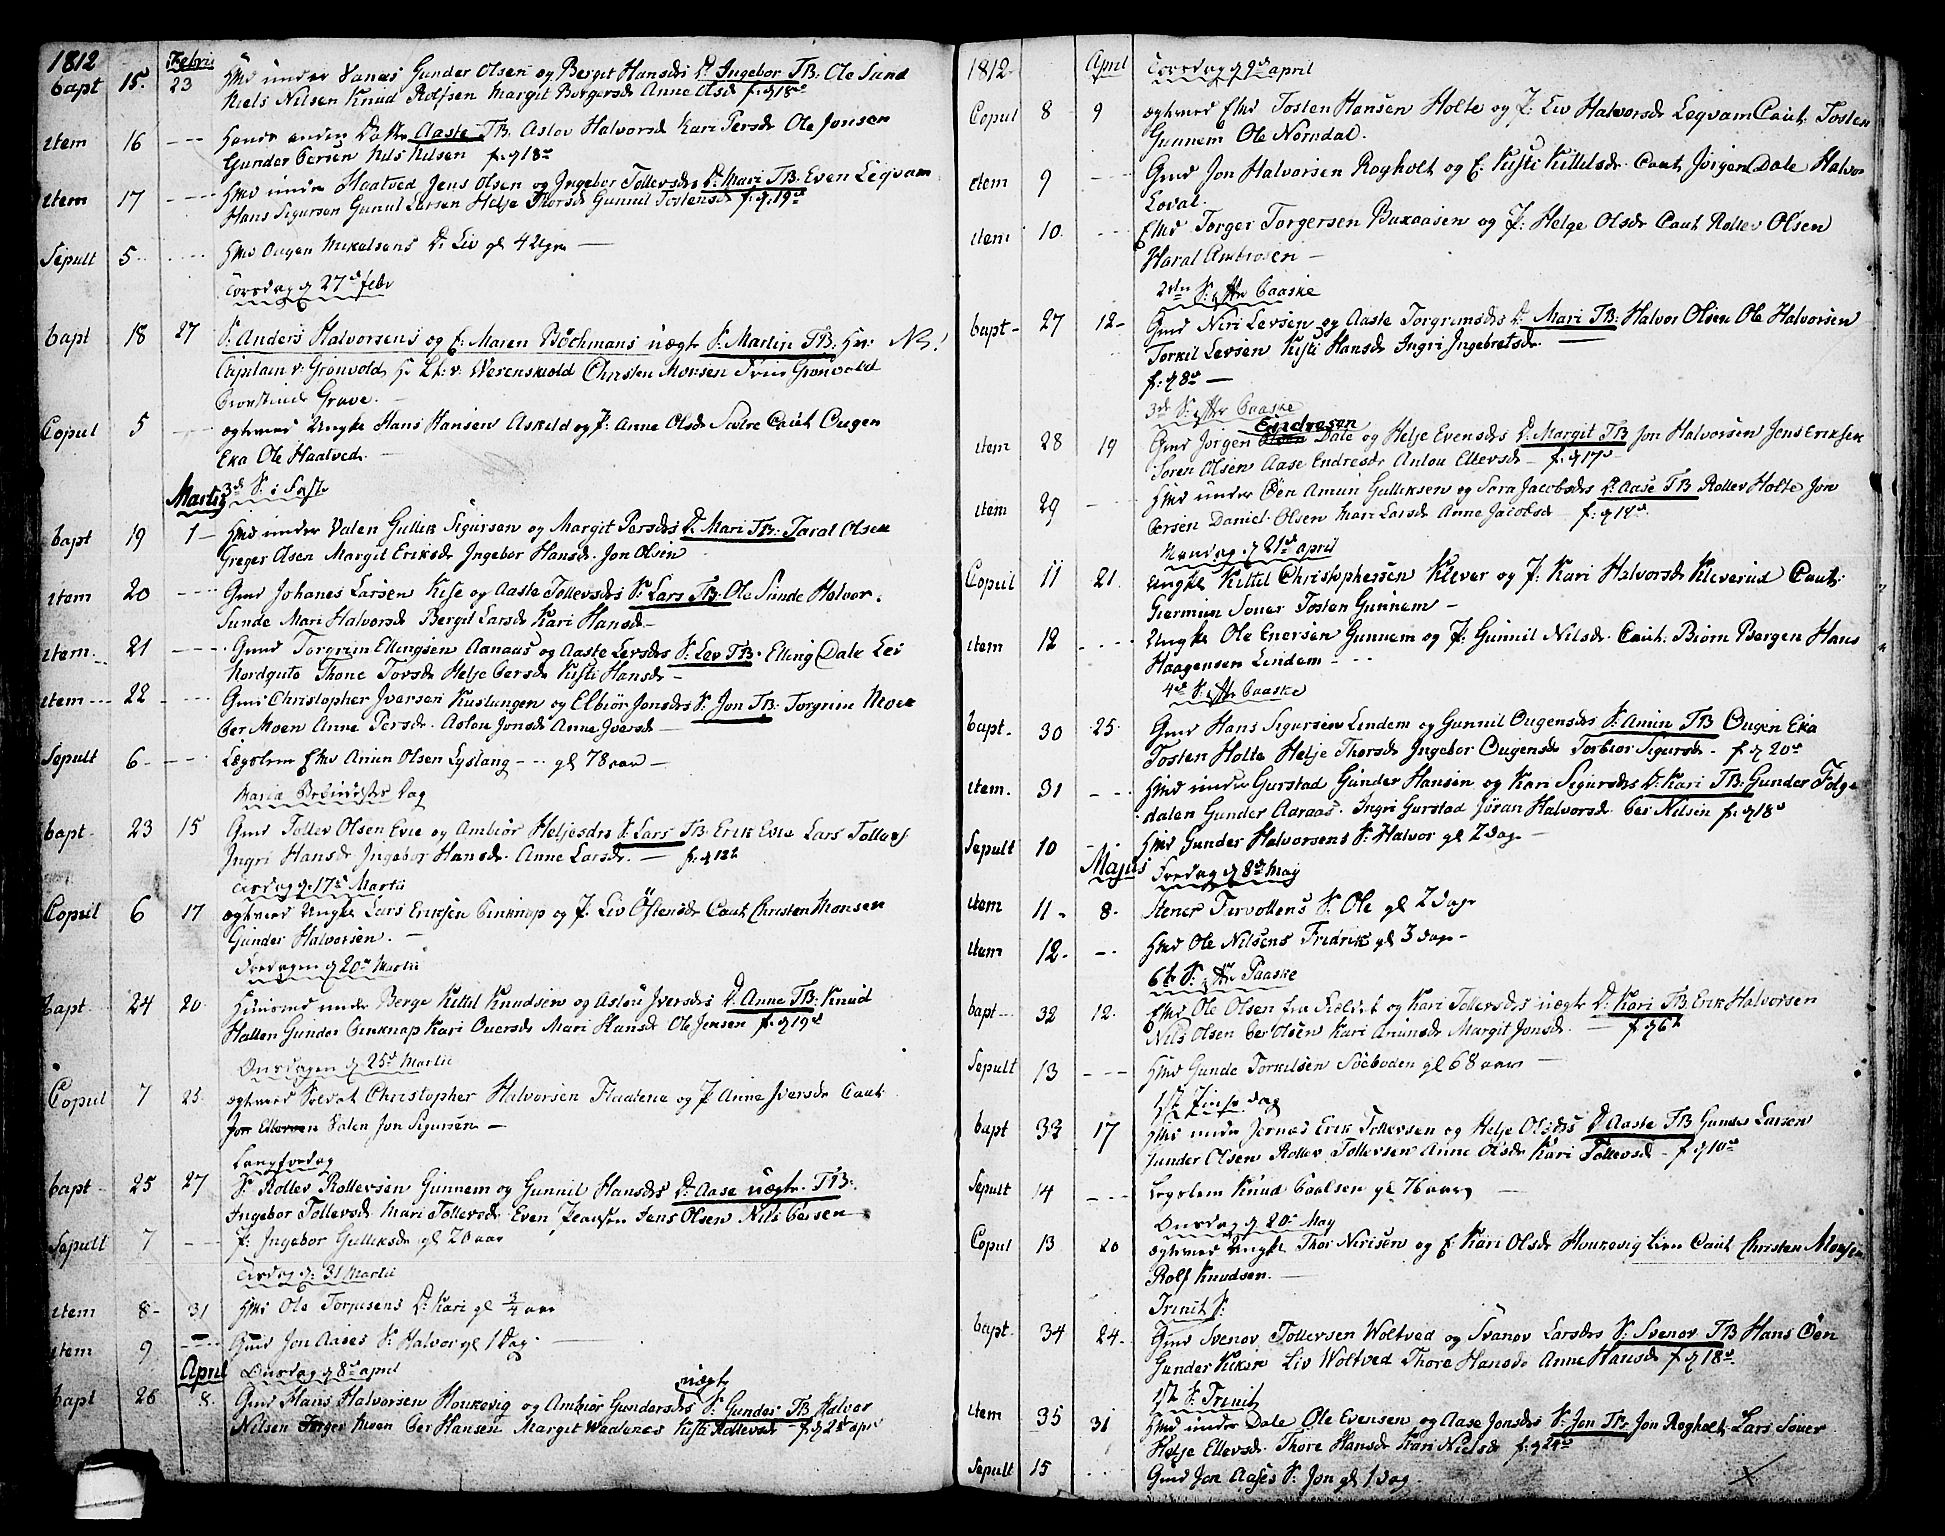 1812 Febru
bapt 15. 23 Hmd under Vanas Gunder Olsen og Berget Hansdrs D. Ingebor TB: Ole Sund
Niels Nilsen Knud Rolfsen Margit Borgersd Anne Olsd f. 18
item 16 --- Aaste TB Aslov Halvorsd Kari Persd Ole Jonsen
Gunder Persen Nils Nilsen f. 18
item 17 --- Hmd under Haatved Jens Olsen og Ingebor Tollevsdrs D. Mari TB. Even Leqvam
Hans Sigursen Gunul Larsen Helje Thorsd Gunnil Tostensd f. 19
Sepult 5 --- Hmd Ougen Mikelsens D. Liv gl 4 Ugr
Torsdag 27 febr
bapt 18 27 S. Anders Halvorsens og E. Maren Böchmans uægte S. Martin TB. Hr. NB!
Capitain v. Grønvold Hr Lt: v. Werenskiold Christen Monsen Grønvold
Grave.
Copul 5 --- Ungke Hans Hansen Askild og P. Anne Olsd Sætre Caut Ougen
Eka Ole Haatved
Martij 3d S. i Faste
bapt 19 1 Hmd under Valen Gullik Sigursen og Margit Persdrs D. Mari TB: Taral Olsen
Greger Olsen Margit Eriksd Ingebor Hansd. Jon Olsen
item 20 --- Gmd Johanes Larsen Kise og Aaste Tollevsdrs S. Lars TB. Ole Sunde Halvor
Sunde Mari Halvorsd Bergit Larsd Kari Hansd
item 21 --- Gmd Torgrim Ellingsen Aanaas og Aaste Levsdrs S. Lev TB. Elling Dale Lev
Nordguto Thone Torsd Helje Persd Kisti Hansd
item 22 --- Gmd Christopher Iversen Kuslungen og Elbiør Jonsdrs S. Jon TB. Torgrim Moen
Per Moen Anne Persd. Aslou Jonsd Anne Iversd
Sepult 6 --- Lægslem Amun Olsen Lyslang --- gl 78 aar
Maria Dag
bapt 23 15 Gmd Tollev Olsen Evie og Ambiør Heljesdrs S. Lars TB Erik Evie Lars Tollevs
Ingri Hansd Ingebor Hansd. Anne Larsd. f. 12
Tirsdag 17 Martii
Copul 6 17 Ungke Lars Eriksen Penknap og P. Liv Östensd Caut Christen Monsen
Gunder Halvorsen.
Fredagen 20 Martii
bapt 24 20 Huusmd under Berge Kittil Knudsen og Aslou Iversdrs D. Anne TB. Knud
Hallen Gunder Penknap Kari Ouersd Mari Hansd Ole Jensen f. 19
Onsdagen 25 Martii
Copul 7 25 Soldat Christopher Halvorsen Flaatene og P. Anne Iversd Caut
Jon Ellevsen Valen Jon Sigursen
Langfredag
bapt 25 27 S. Rollev Rollevsen Gunnem og Gunnil Hansdrs D. Aase uægte TB.
Ingebor Tollevsd Mari Tollevsd Even Jens Olsen Nils Persen
Sepult 7 --- P. Ingebor Gulliksd gl 20 aar
Tirsdag 31 Martii
item 8 31 Hmd Ole Torjusens D. Kari gl 3/4 aar
item 9 --- Gmd Jon Aases S. Halvor gl 1 Dag
April Onsdag 8 april
bapt 26 8. Gmd Hans Halvorsen Houkevig og Ambiør Gundersdrs uægte S. Gunder TB Halvor
Nilsen Torger Moen Per Hansen Margit Kisti Rollevsd f. 2 apr
1812 April Torsdag 9 april
Copul 8 9 Tosten Hansen Holte og P. Liv Halvorsd Leqvam Caut. Tosten
Gunnem Ole Norndal.
item 9 --- Gmd Jon Halvorsen Rogholt og E. Kisti Kittilsd. Caut. Jörgen Dale Halvor
Loval.
item 10 --- Torger Torgersen Buxaasen og P. Helge Olsd Caut Rollev Olsen
Haral Ambrosen
2den S. efter Paaske
bapt 27 12 Gmd Niri Levsen og Aaste Torgrimsdrs D. Mari TB. Halvor Olsen Ole Halvorsen
Torkil Levsen Kisti Hansd Ingri Ingebretsd.
f. 8
3de S. efter Paaske
item 28 19 Gmd Jörgen Olsen Endresen Dale og Helje Evensdrs D. Margit TB Jon Halvorsen Jens Eriksen
Soren Olsen Aase Endresd Anlou Ellevsd f. 17
item 29 --- Hmd under Öen Amun Gulliksen og Sara Jacobsdrs D. Aase TB Rollev Holte Jon
Persen Daniel Olsen Mari Larsd Anne Jacobsd f. 14
21 april
Copul 11 21. Ungke Kittil Christophersen Klever og P. Kari Halvorsd Kleverud Caut.
Germun Souer Tosten Gunnem
item 12 --- Ungke Ole Enersen Gunnem og P. Gunnil Nilsd. Caut. Biörn Bergen Hans
Haagensen Lindem
4de S. efter Paaske
bapt 30 25. Gmd Hans Sigursen Lindem og Gunnil Ougensdrs S. Amun TB Ougen Eka
Tosten Holte Helje Thorsd Ingebor Ougensd Torbior Sigursd. f. 20
item 31 --- Hmd under Gurstad Gunder Hansen og Kari Sigursdrs D. Kari TB. Gunder Folge
dalen Gunder Aaraas. Ingri Gurstad Jöran Halvorsd. Per Nilsen f. 18
Sepult 10 --- Hmd Gunder Halvorsens S. Halvor gl 2 Dag
Majus Fredag 8 May
item 11 8. Stener Tervollens S. Ole gl 2 Dag
item 12 --- Hmd Ole Nilsens Fridrik gl 3 Dag
6te S. efter Paaske
bapt 32 12. Ole Olsen fra og Kari Tollevsdrs uægte D. Kari TB. Erik Halvorsen
Nils Olsen Per Olsen Kari Amunsd Margit Jonsd. f. 6
Sepult 13 --- Hmd Gunde Torkilsen Söeboden gl 68 aar
1st Pinse dag
bapt 33 17 Hmd under Jernæs Erik Tollevsen og Helje Olsdrs D. Aaste TB Gunder Larsen
Gunder Olsen Rollev Tollevsen Anne Olsd Kari Tollevsd f. 10
Sepult 14 --- Legslem Knud Paalsen gl 76 aar
Onsdag 20 May
Copul 13 20 Ungke Thor Nirisen og E. Kari Olsd Houkevig Lien Caut. Christen Monsen
Rolf Knudsen.
Trinit S:
bapt 34 24 Gmd Svenov Tollevsen Woltved og Svanov Larsdrs S. Svenov TB Hans Öen
Gunder Kikin Liv Woltved Thore Hansd Anne Hansd f. 18
1st S. Trinit
item 35 31 Hmd under Dale Ole Evensen og Aase Jonsdrs S. Jon TB. Jon Rogholt Lars Souer
Helje Ellevsd. Thore Hansd Kari Nielsd f. 24
Sepult 15 --- Gmd Jon Aases S. Jon gl 1 Dag.